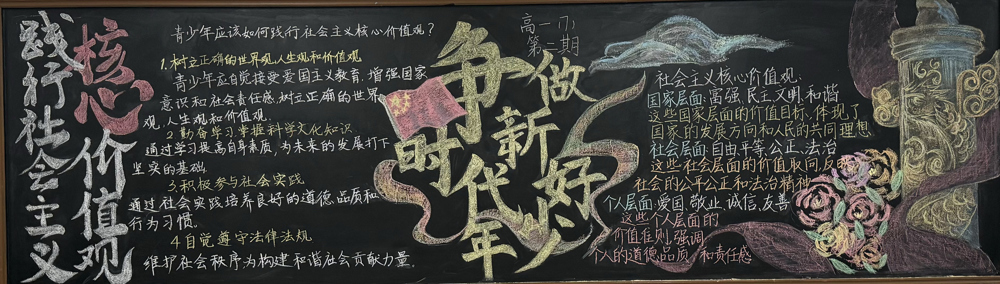 践行社会主义
核心价值观
青少年应该如何践行社会主义核心价值观？
1.树立正确的世界观、人生观和价值观
青少年应自觉接受爱国主义教育,增强国家
意识和社会责任感,树立正确的世界
观、人生观和价值观.
2.勤奋学习掌握科学文化知识
通过学习提高自身素质,为未来的发展打下
坚实的基础.
3.积极参与社会实践.
通过社会实践培养良好的道德品质和
行为习惯.
4自觉遵守法律法规
维护社会秩序为构建和谐社会贡献力量.
高一(7)
第二期
争做
新时代
好少年
社会主义核心价值观:
国家层面:富强、民主文明、和谐
这些国家层面的价值目标,体现了
国家的发展方向和人民的共同理想
社会层面:自由、平等、公正、法治
这些社会层面的价值取向,反映
社会的公平公正和法治精神
个人层面:爱国、敬业、诚信、友善
这些个人层面的
价值准则,强调
个人的道德品质和责任感